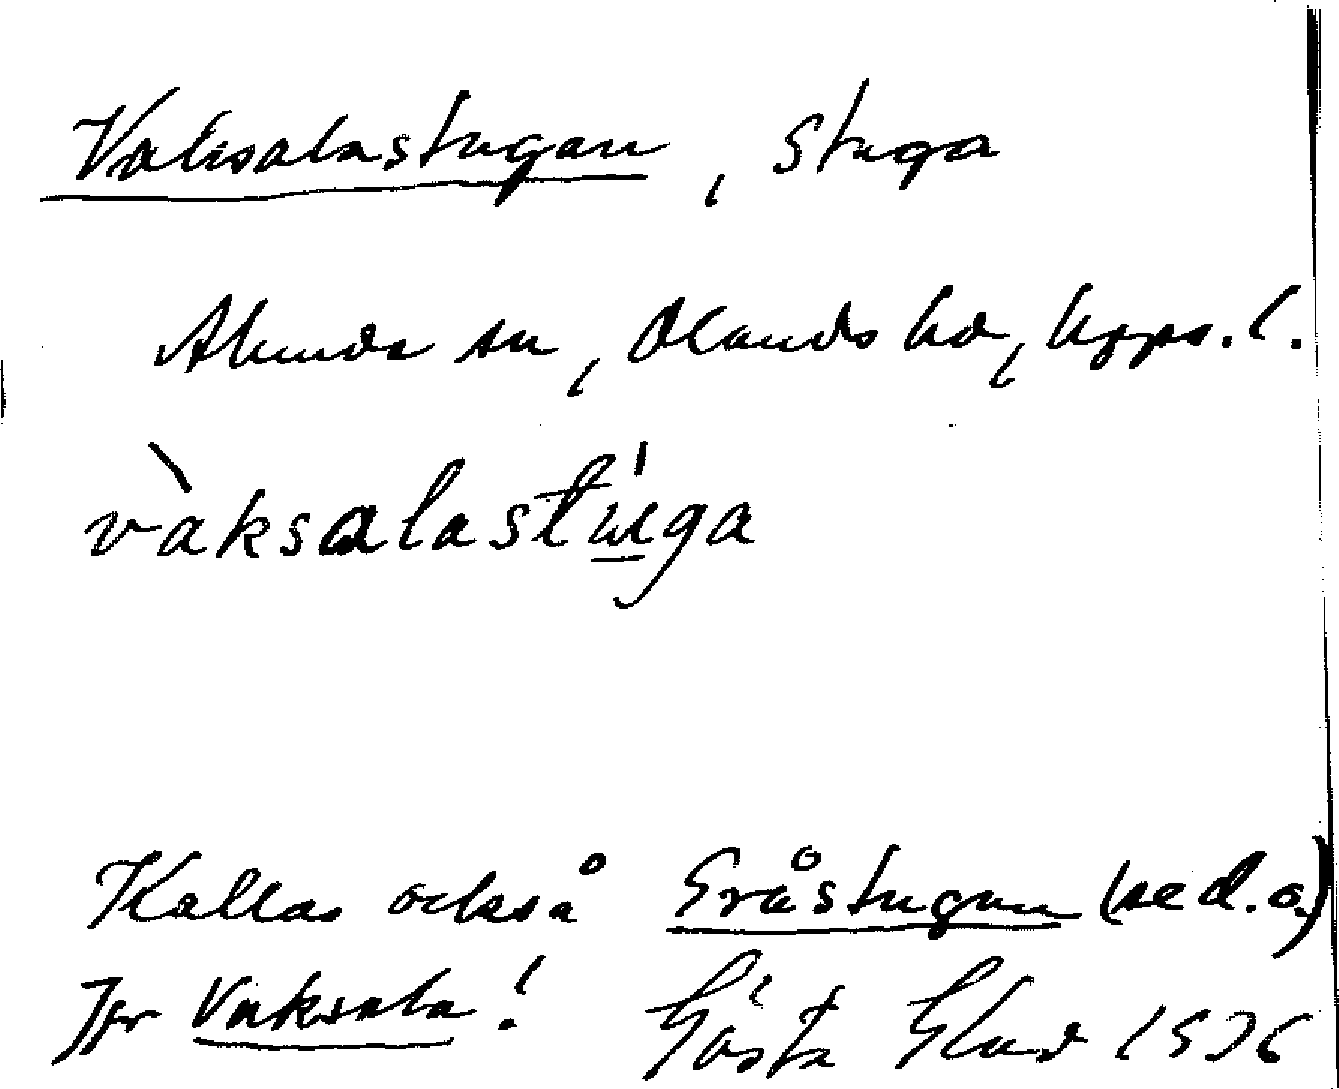 Vaksalastugan, stuga
Alunda sn, Olands hd, Upps. l.
vàksalastu̲'ga
Kallas också Gråstugan (se d. o.)
Jfr Vaksala! Gösta Glad 1976